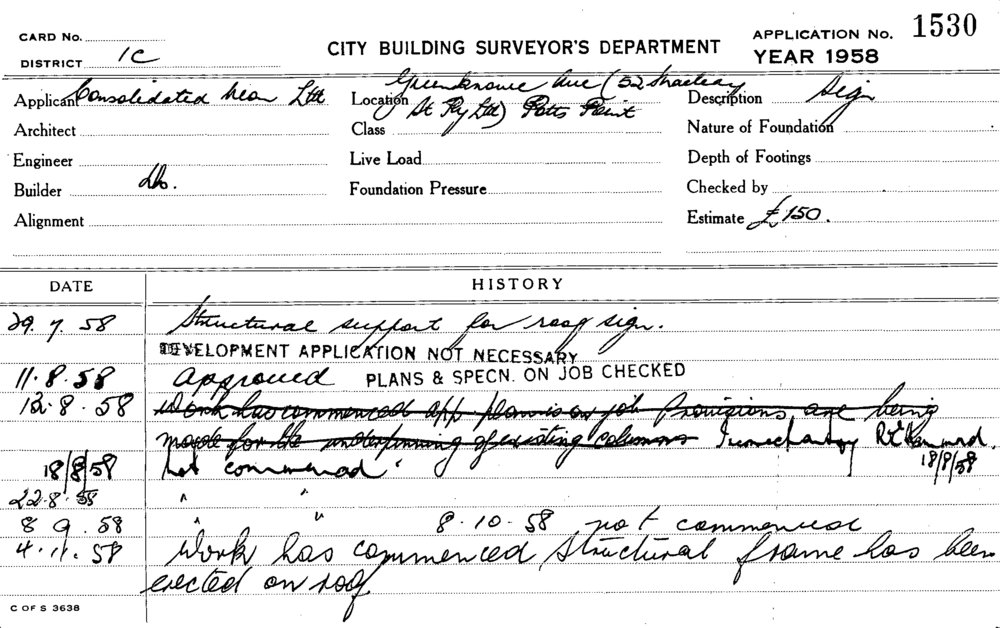 CARD No.
DISTRICT 1C
CITY BUILDING SURVEYOR'S DEPARTMENT
APPLICATION No. 1530
YEAR 1958
Applicant Consolidated Neon Ltd
Location Greenknowe Ave (52 Macleay
St Pty Ltd) Potts Point
Description Sign
Architect
Class
Nature of Foundation
Engineer
Live Load
Depth of Footings
Builder do.
Foundation Pressure
Checked by
Alignment
Estimate £150.
DATE HISTORY
29.7.58 Structural support for roof sign.
DEVELOPMENT APPLICATION NOT NECESSARY
11.8.58 Approved PLANS & SPECN. ON JOB CHECKED
12.8.58 Work has commenced app plans on job Provisions are being
made for the underpinning of existing columns
18/8/58
18/8/58 not commenced.
22.8.58 " "
8 9.58 " " 8.10.58 not commenced
4.11.58 Work has commenced, structural frame has been
erected on roof
C OF S 3638